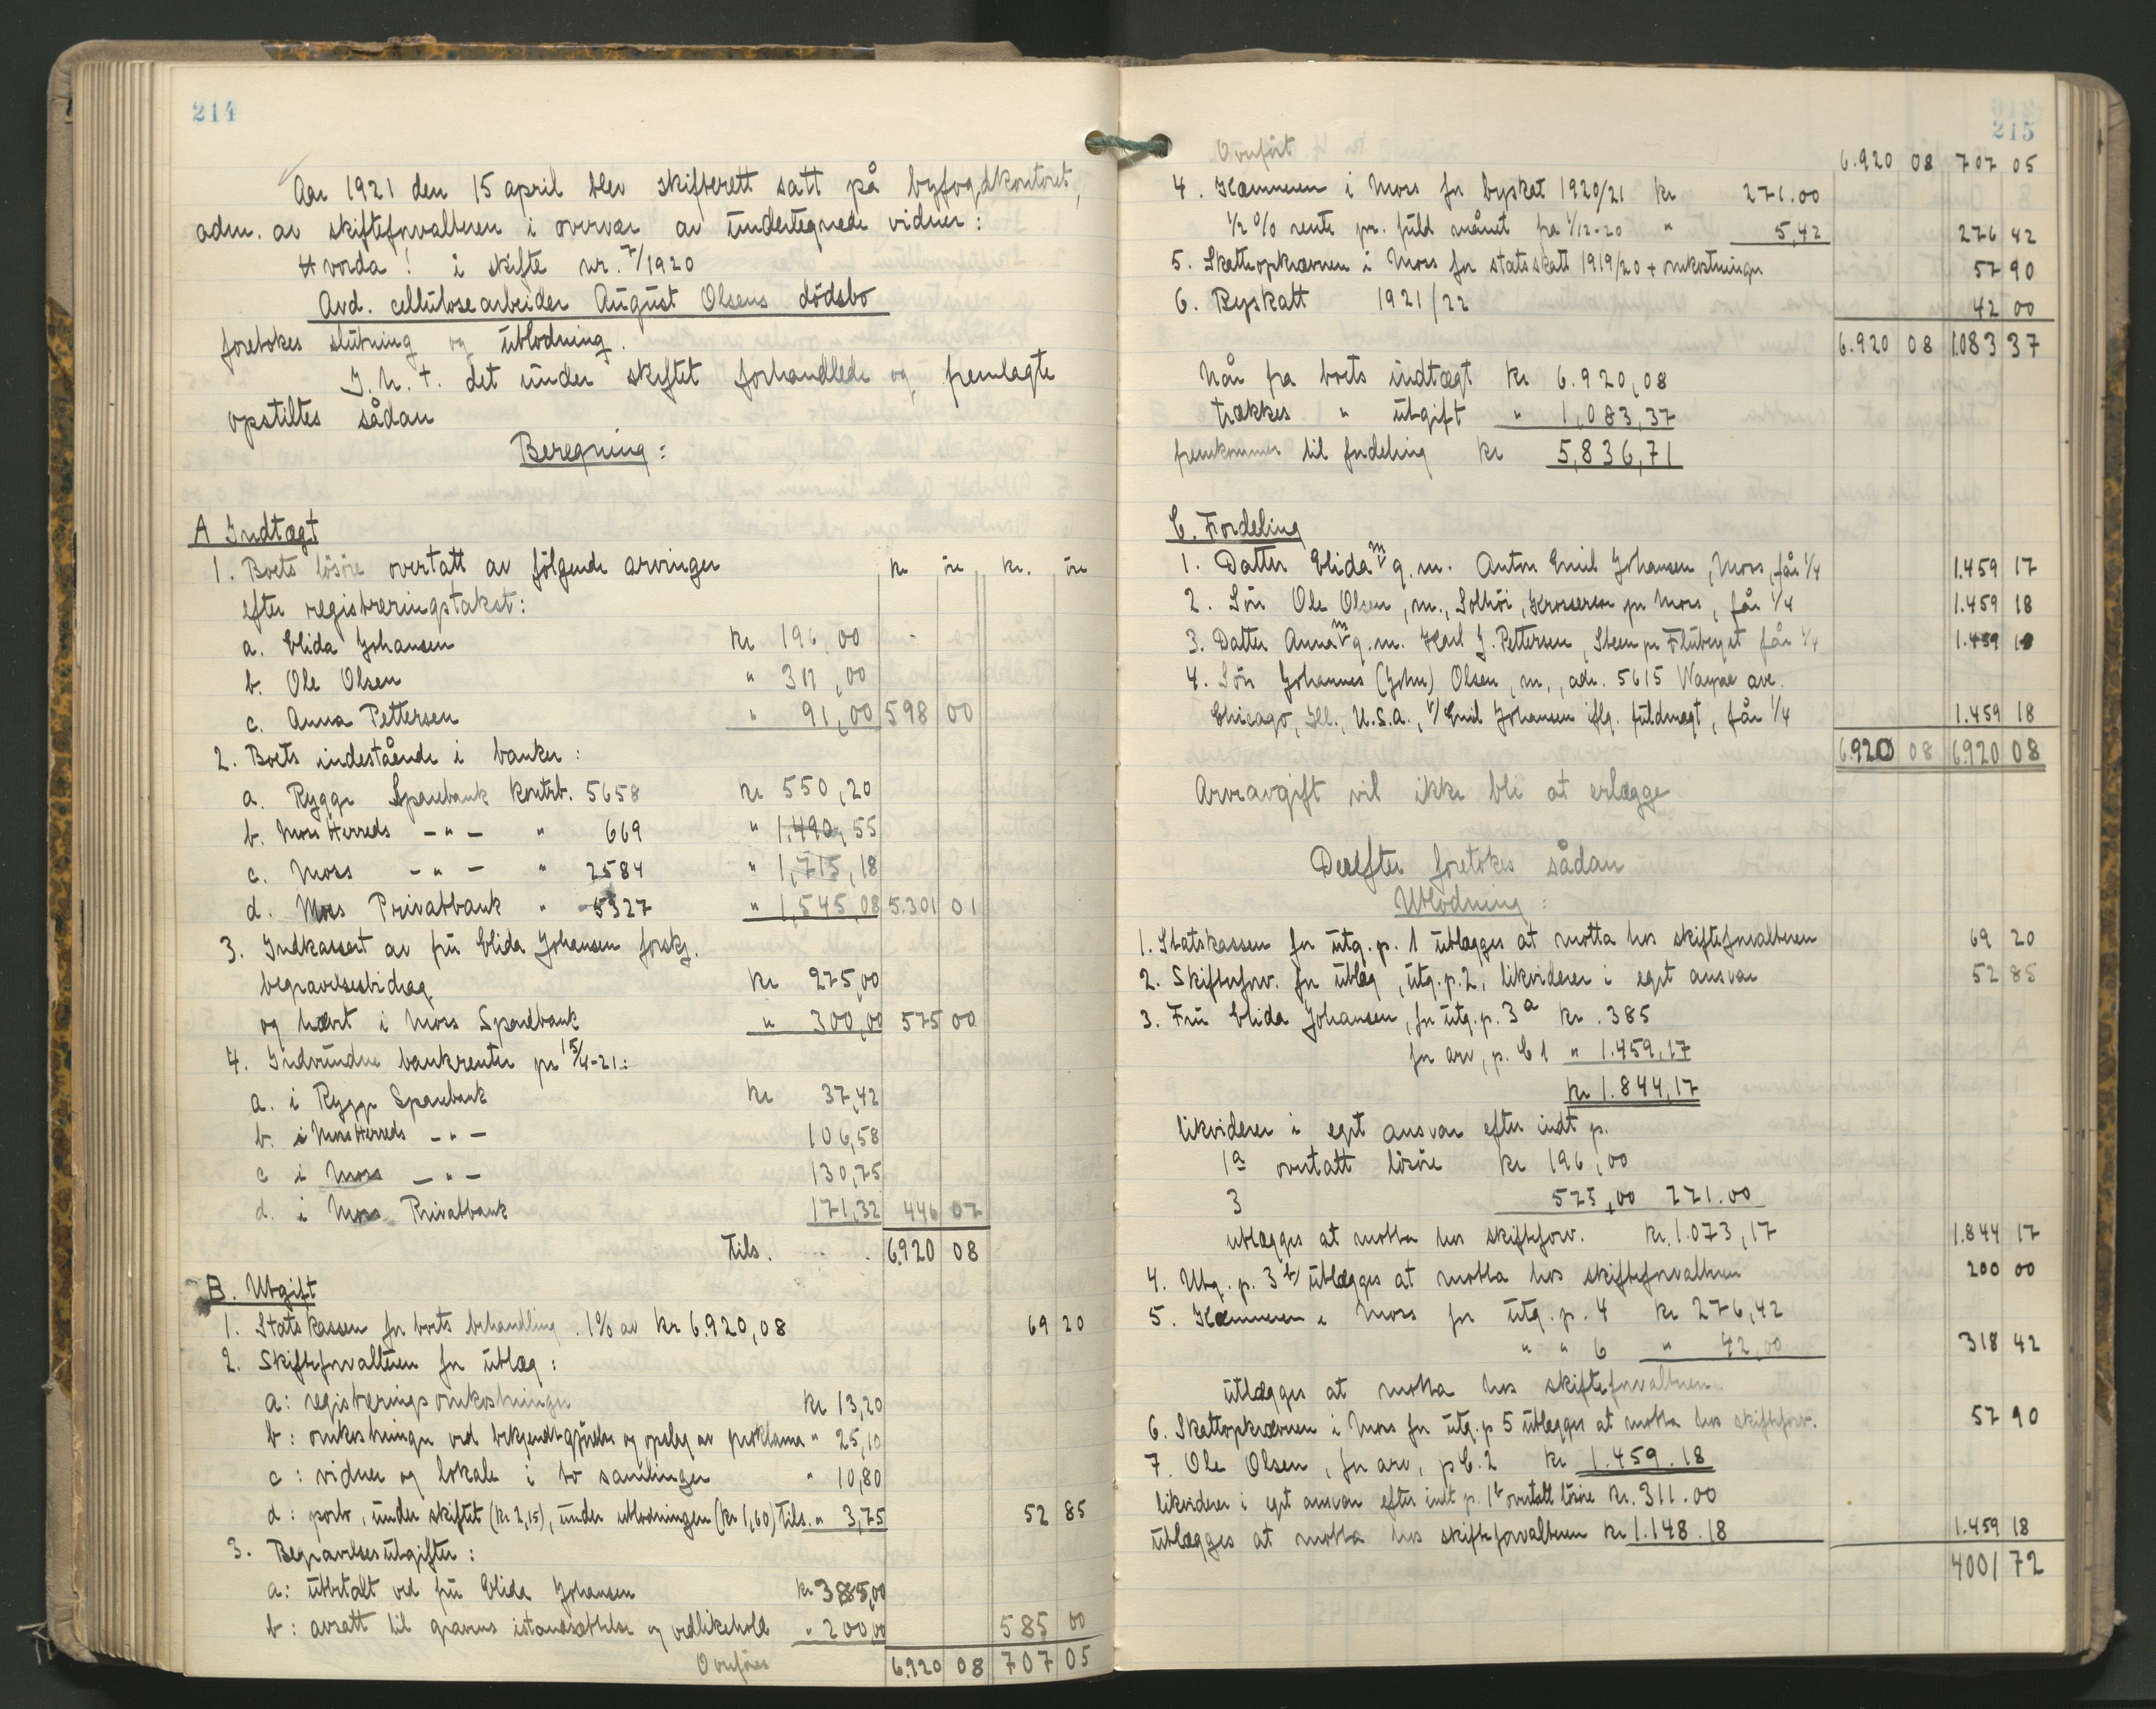 214
Aar 1921 den 15 april blev skifterett satt på byfogdkontoret,
adm. av skifteforvalteren i overvær av undertegnede vidner:
Hvorda! i skifte nr. 7/1920
Avd. cellulosearbeider August Olsens dödsbo
foretokes slutning og utlodning.
I. h. t. det under skiftet forhandlede og fremlagte
opstiltes sådan
Beregning:
A Indtægt
1. Boets lösöre overtatt av fölgende arvinger kr öre kr. öre
efter registreringstakst:
a. Elida Johansen kr 196,00
b. Ole Olsen " 311,00
c. Anna Pettersen " 91,00 598 00
2. Boets indestående i banker:
a. Rygge Sparebank kontrb. 5658 kr 550,20
b. Moss Herreds - " - " 669 " 1.490,55
c. Moss - " - " 2584 " 1,715,18
d. Moss Privatbank " 5327 " 1,545,08 5.301 01
3. Indkassert av fru Elida Johansen forskj.
begravelsesbidrag kr 275,00
og hævt i Moss Sparebank " 300,00 575 00
4. Indvundne bankrenter pr 15/4-21:
a. i Rygge Sparebank kr 37,42
b. i Moss Herreds - " - 106,58
c i Moss - " - 130,75
d. i Moss Privatbank 171,32 446 07
Tils. . . . 6.920 08
B. Utgift
1. Statskassen for boets behandling. 1% av kr 6.920,08 69 20
2. Skifteforvalteren for utlæg:
a: registreringsomkostninger kr 13,20
b: omkostninger ved bekjendtgjörelse og opslag av proklama " 25,10
c: vidner og lokale i to samlinger " 10,80
d: porto, under skiftet (kr 2,15), under utlodningen (kr 1,60) tils. " 3,75 52 85
3. Begravelsesutgifter:
a: utbetalt ved fru Elida Johansen kr 385,00
b: avsatt til gravens istandsættelse og vedlikehold " 200,00 585 00
Overföres 6.920 08 707 05
215
Overfört 6.920 08 707 05
4. Kæmneren i Moss for byskat 1920/21 kr 271.00
1/2 % rente pr. fuld måned fra 1/12-20 " 5,42 276 42
5. Skatteopkræveren i Moss for statsskatt 1919/20 + omkostninger 57 90
6. Byskatt 1921/22 42 00
6.920 08 1.083 37
Når fra boets indtægt kr 6.920,08
trækkes " utgift " 1,083,37
fremkommer til fordeling kr 5,836,71
C. Fordeling
1. Datter Elida m v g. m. Anton Emil Johansen, Moss, får 1/4 1.459 17
2. Sön Ole Olsen, m., Solhöi, Krosseren pr Moss, får 1/4 1.459 18
3. Datter Anna m v g. m. Karl J. Pettersen, Steen pr Fluberget får 1/4 1.459 18
4. Sön Johannes (John) Olsen, m., adr. 5615 Wayne ave.
Chicago, Ill. U.S.A., v/ Emil Johansen iflg. fuldmagt, får 1/4 1.459 18
6.920 08 6.920 08
Arveavgift vil ikke bli at erlægge
Derefter foretokes sådan
Utlodning:
1. Statskassen for utg. p. 1 utlægges at motta hos skifteforvalteren 69 20
2. Skifteforv. for utlæg, utg. p. 2, likviderer i eget ansvar 52 85
3. Fru Elida Johansen, for utg. p. 3 a kr. 385
for arv, p. C 1 " 1.459,17
kr 1.844,17
likviderer i eget ansvar efter indt p.
1a overtatt lösöre kr 196,00
3 575,00 771.00
utlægges at motta hos skifteforv. kr. 1.073,17 1.844 17
4. Utg. p. 3 b/ utlægges at motta hos skifteforvalteren 200 00
5. Kæmneren i Moss for utg. p. 4 kr 276,42
" " 6 " 42,00 318 42
utlægges at motta hos skifteforvalteren.
6. Skatteopkræveren i Moss for utg. p 5 utlægges at motta hos skifteforv. 57 90
7. Ole Olsen, for arv, p C. 2 kr 1.459.18
likviderer i eget ansvar efter indt p. 1b overtatt lösöre kr. 311.00
utlægges at motta hos skifteforvalteren kr 1.148.18 1.459 18
4001 72